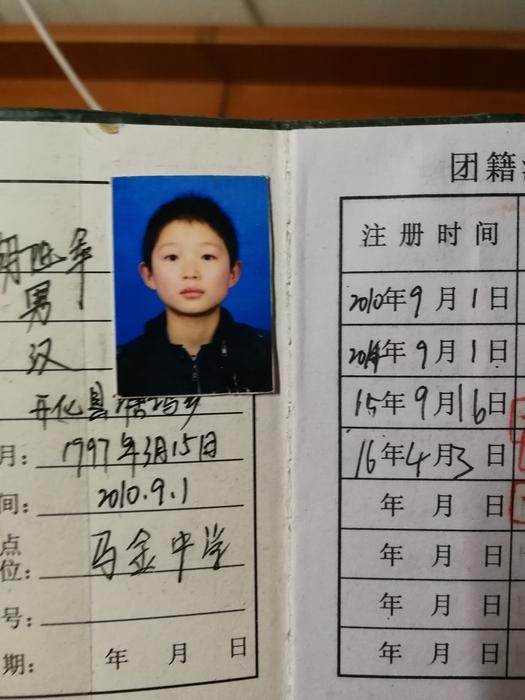 男
汉
开化县
月: 1997年3月15日
间: 2010.9.1
点
位: 马金中学
号:
期: 年 月 日
团籍
注册时间
2010年9月1日
年9月1日
15年9月16日
16年4月3日
年 月 日
年 月 日
年 月 日
年 月 日